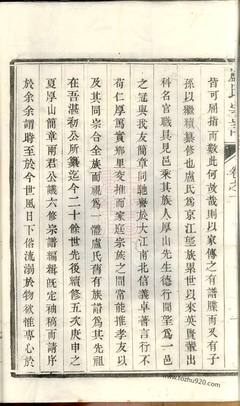 盧氏宗譜
卷之一
皆可屈指而數此何故哉則以家傳之有譜牒而又有子
孫以繼續纂修也盧氏爲京江望族果世以來英賢輩出
科名官職具見邑乘其族人厚山先生德行聞望爲一邑
之冠與我友簡章詞馳譽於大江南北信義卓著言行不
苟仁厚篤實鄉里交推而家庭宗族之間常能推孝友以
及其同宗合全族而視爲一體盧氏舊有族譜爲其先祖
在吾湛初公所纂迄今二十餘世先後續修五次庚申之
夏厚山簡章兩君公議六修宗譜編輯既定稿而請序
於余余謂時至於今世風日下俗流溺於物欲惟專心於
www.tozhu920.com